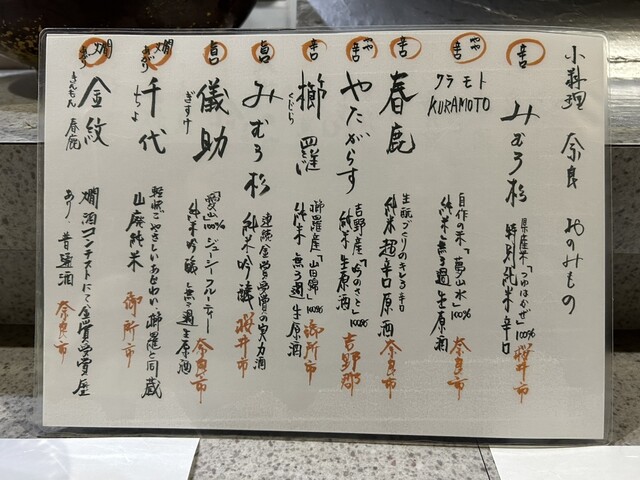 小料理 奈良 おのみもの
辛
みむろ杉
県産米「つゆはかぜ」100%
特別純米 辛口
桜井市
やや
辛
クラモト
KURAMOTO
自作の米「夢山水」100%
純米 無ろ過生原酒
奈良市
辛
春鹿
生酛づくりのキレる辛口
純米 超辛口原酒
奈良市
やや
辛
やたがらす
吉野産「吟のさと」100%
純米 生原酒
吉野郡
辛
櫛羅
くじら
櫛羅産「山田錦」100%
純米 無ろ過生原酒
御所市
旨
みむろ杉
連続金賞受賞の実力酒
純米吟醸
桜井市
旨
儀助
ぎすけ
愛山100% ジューシーフルーティー
純米吟醸 無ろ過生原酒
奈良市
燗
あがり
千代
ちよ
軽快でやさしい味わい 櫛羅と同蔵
山廃純米
御所市
燗
あり
金紋
きんもん 春鹿
燗酒コンテストにて金賞受賞歴
あり 普通酒
奈良市